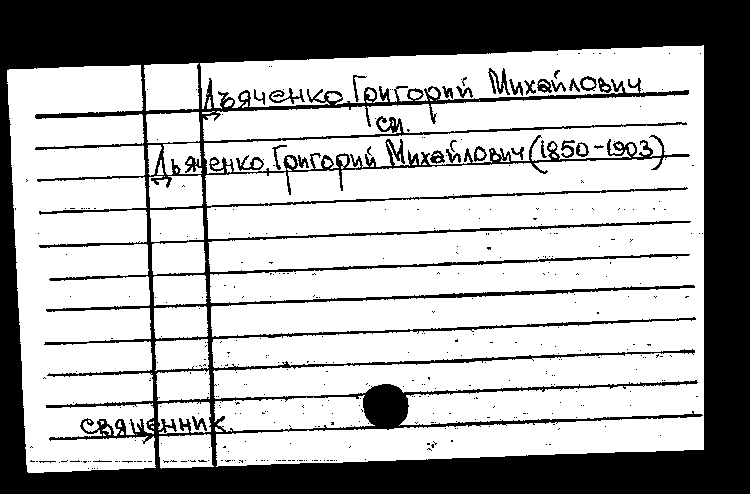 Дъяченко, Григорий Михайлович
см.
Дьяченко, Григорий Михайлович (1850-1903)
священник.